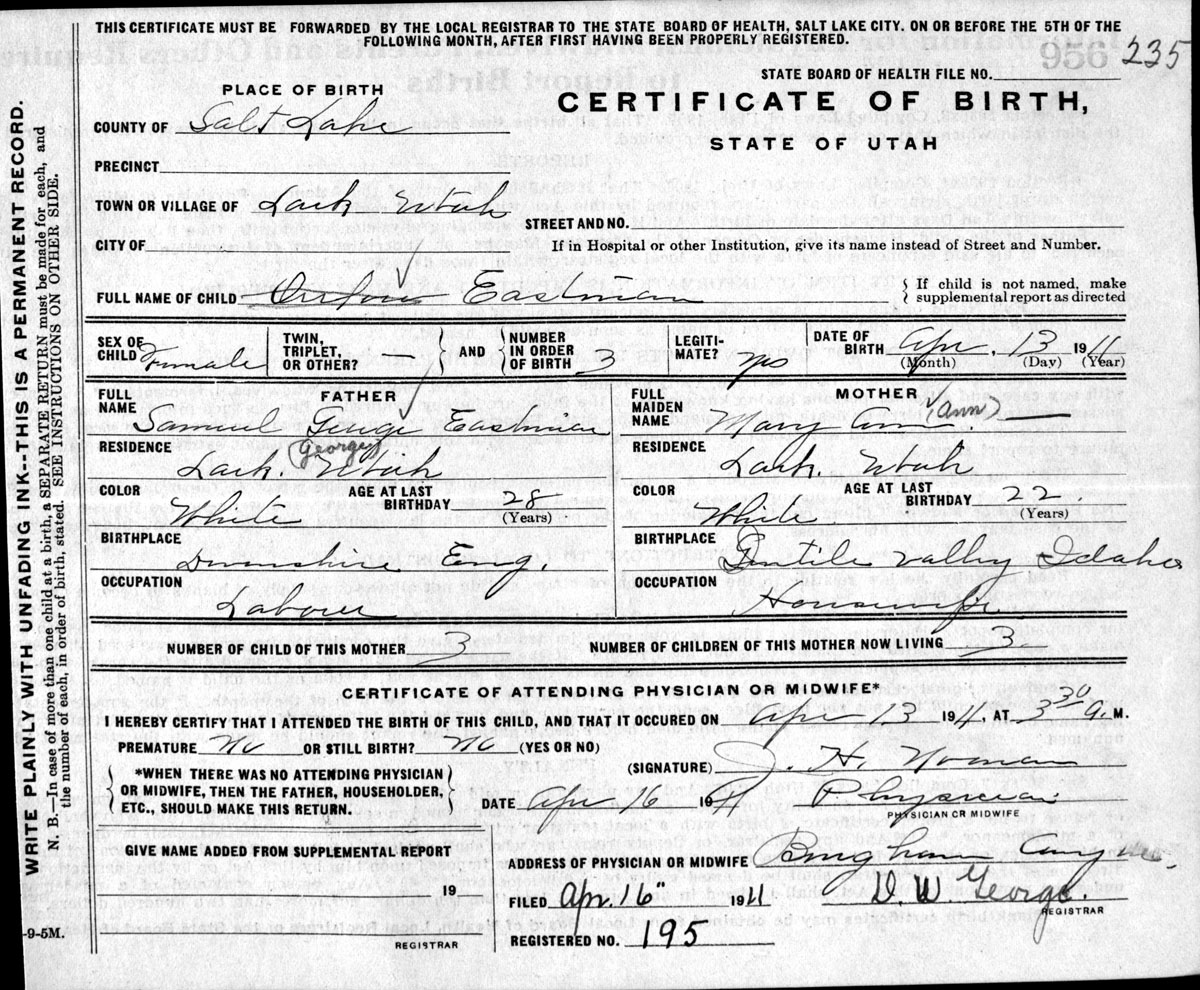 THIS CERTIFICATE MUST BE FORWARDED BY THE LOCAL REGISTRAR TO THE STATE BOARD OF HEALTH, SALT LAKE CITY. ON OR BEFORE THE 5TH OF THE
FOLLOWING MONTH, AFTER FIRST HAVING BEEN PROPERLY REGISTERED.
235
956
STATE BOARD OF HEALTH FILE NO.
WRITE PLAINLY WITH UNFADING INK--THIS IS A PERMANENT RECORD.
N. B.—In case of more than one child at a birth, a SEPARATE RETURN must be made for each, and
the number of each, in order of birth, stated. SEE INSTRUCTIONS ON OTHER SIDE.
PLACE OF BIRTH
CERTIFICATE OF BIRTH,
STATE OF UTAH
COUNTY OF Salt Lake
PRECINCT
TOWN OR VILLAGE OF Lark Utah
STREET AND NO.
CITY OF
If in Hospital or other Institution, give its name instead of Street and Number.
FULL NAME OF CHILD Eastman
If child is not named, make
supplemental report as directed
SEX OF CHILD Female TWIN, TRIPLET, OR OTHER? — AND NUMBER IN ORDER OF BIRTH 3 LEGITI-MATE? yes DATE OF BIRTH Apr. 13 1911
(Month) (Day) (Year)
FULL NAME FATHER Samuel George Eastman
(George)
RESIDENCE Lark. Utah
COLOR White AGE AT LAST BIRTHDAY 28 (Years)
BIRTHPLACE Devonshire Eng.
OCCUPATION Laborer
FULL MAIDEN NAME MOTHER Mary Ann. (Ann)
RESIDENCE Lark. Utah
COLOR White AGE AT LAST BIRTHDAY 22. (Years)
BIRTHPLACE Gentile Valley Idaho
OCCUPATION Housewife
NUMBER OF CHILD OF THIS MOTHER 3 NUMBER OF CHILDREN OF THIS MOTHER NOW LIVING 3
CERTIFICATE OF ATTENDING PHYSICIAN OR MIDWIFE*
I HEREBY CERTIFY THAT I ATTENDED THE BIRTH OF THIS CHILD, AND THAT IT OCCURED ON Apr 13 1911, AT 3 30 A. M.
PREMATURE No OR STILL BIRTH? No (YES OR NO)
(SIGNATURE) J. H. Noman
*WHEN THERE WAS NO ATTENDING PHYSICIAN
OR MIDWIFE, THEN THE FATHER, HOUSEHOLDER,
ETC., SHOULD MAKE THIS RETURN.
DATE Apr 16 1911 Physician
PHYSICIAN OR MIDWIFE
GIVE NAME ADDED FROM SUPPLEMENTAL REPORT
19
REGISTRAR
ADDRESS OF PHYSICIAN OR MIDWIFE Bingham Canyon
FILED Apr. 16" 1911 D. W. George.
REGISTRAR
REGISTERED NO. 195
-9-5M.